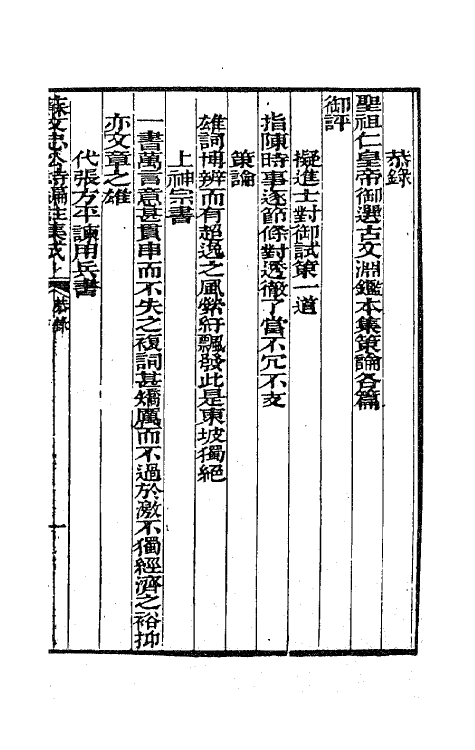 恭錄
聖祖仁皇帝御選古文淵鑑本集策論各篇
御評
擬進士對御試策一道
指陳時事逐節條對透徹了當不冗不支
策論
雄詞博辨而有超逸之風縈紆飄發此是東坡獨絕
上神宗書
一書萬言意甚貫串而不失之複詞甚矯厲而不過於激不獨經濟之裕抑
亦文章之雄
代張方平諫用兵書
蘇文忠公詩編註集成 恭錄